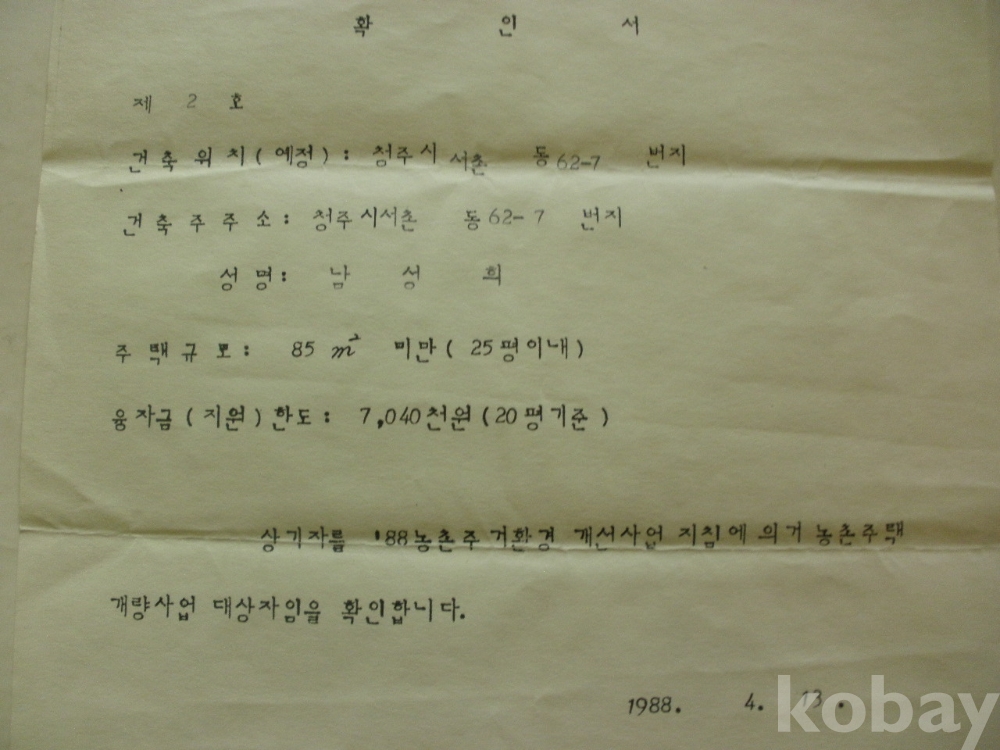 확 인 서
제 2 호
건축위치(예정): 청주시 서촌 동 62-7 번지
건축주주소: 청주시서촌 동 62-7 번지
성명: 남 성 희
주택규모: 85 m² 미만(25평이내)
융자금(지원)한도: 7,040천원(20평기준)
상기자를 '88농촌주거환경 개선사업 지침에 의거 농촌주택
개량사업 대상자임을 확인합니다.
1988. 4. 13.
kobay